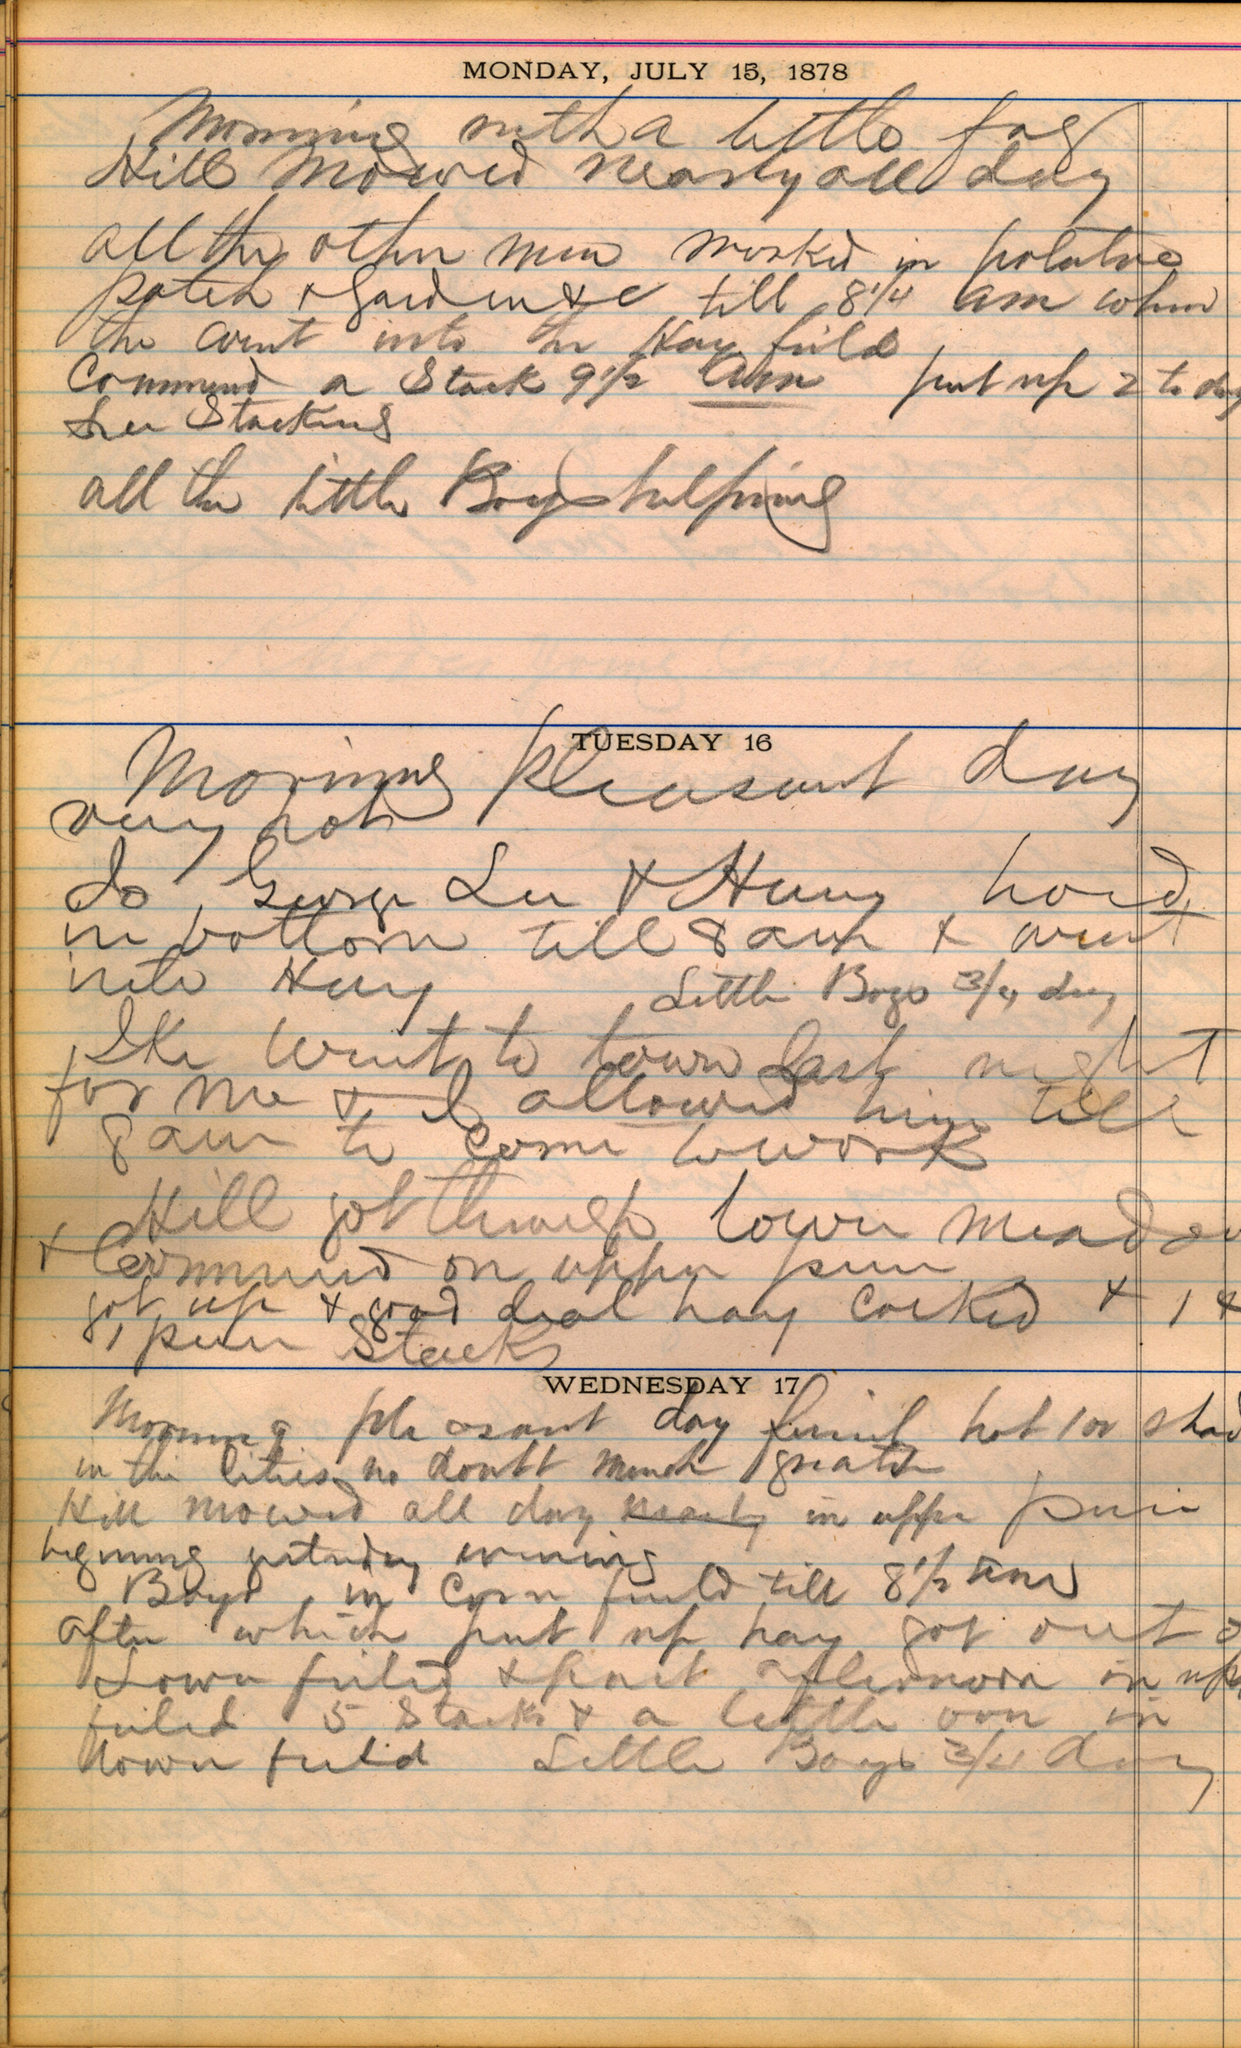 MONDAY, JULY 15, 1878
Morning with a little fog
Hill Mowed nearly all day
all the other men worked in potatoe
patch & Garden &c till 8 1/4 am when
the went into the Hay field
Commend a Stack 9 1/2 am put up 2 to day
Lee Stacking
all the little Boys helping
TUESDAY 16
Morning pleasant day
very hot
Jo George Lee & Henry hoed
in bottom till 8 am & went
into Hay Little Boys 3/4 day
Ike went to town last night
for me & I allowed him till
8 am to come to work
Hill got through lower meadow
& Commend on upper
got up & good deal hay cocked & 1 &
Stacks
WEDNESDAY 17
Morning pleasant day hot 100 shad
in the Cities no doubt much greater
Hill mowed all day nearly in upper
begining yesterday evening
Boys in Corn field till 8 1/2 am
after which put up hay got out of
Lower field & part afternoon in
field 5 Stacks & a little one in
lower field Little Boys 3/4 day